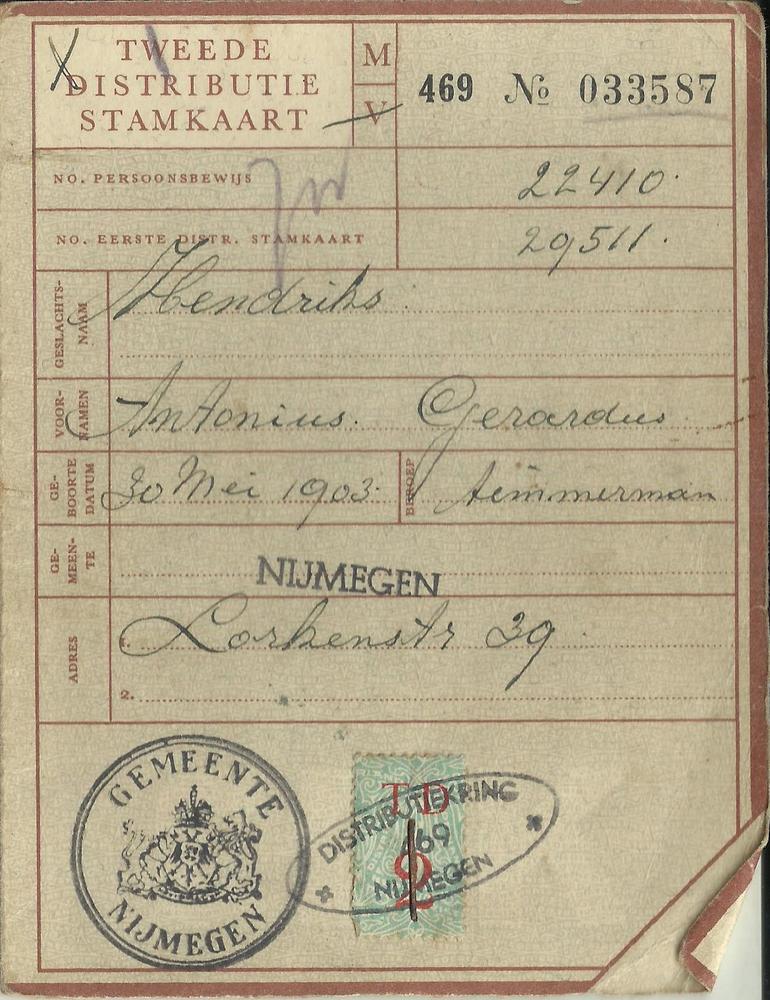 TWEEDE
DISTRIBUTIE
STAMKAART
M
V
469 No 033587
NO. PERSOONSBEWIJS 22410.
NO. EERSTE DISTR. STAMKAART 29511.
GESLACHTS-
NAAM
Hendriks
VOOR-
NAMEN
Antonius. Gerardus
GE-
BOORTE
DATUM
30 Mei 1903.
BEROEP
timmerman
GE-
MEEN-
TE
NIJMEGEN
ADRES
1. Lorkenstr 39
2.
GEMEENTE
NIJMEGEN
TD
2
DISTRIBUTIEKRING
469
NIJMEGEN